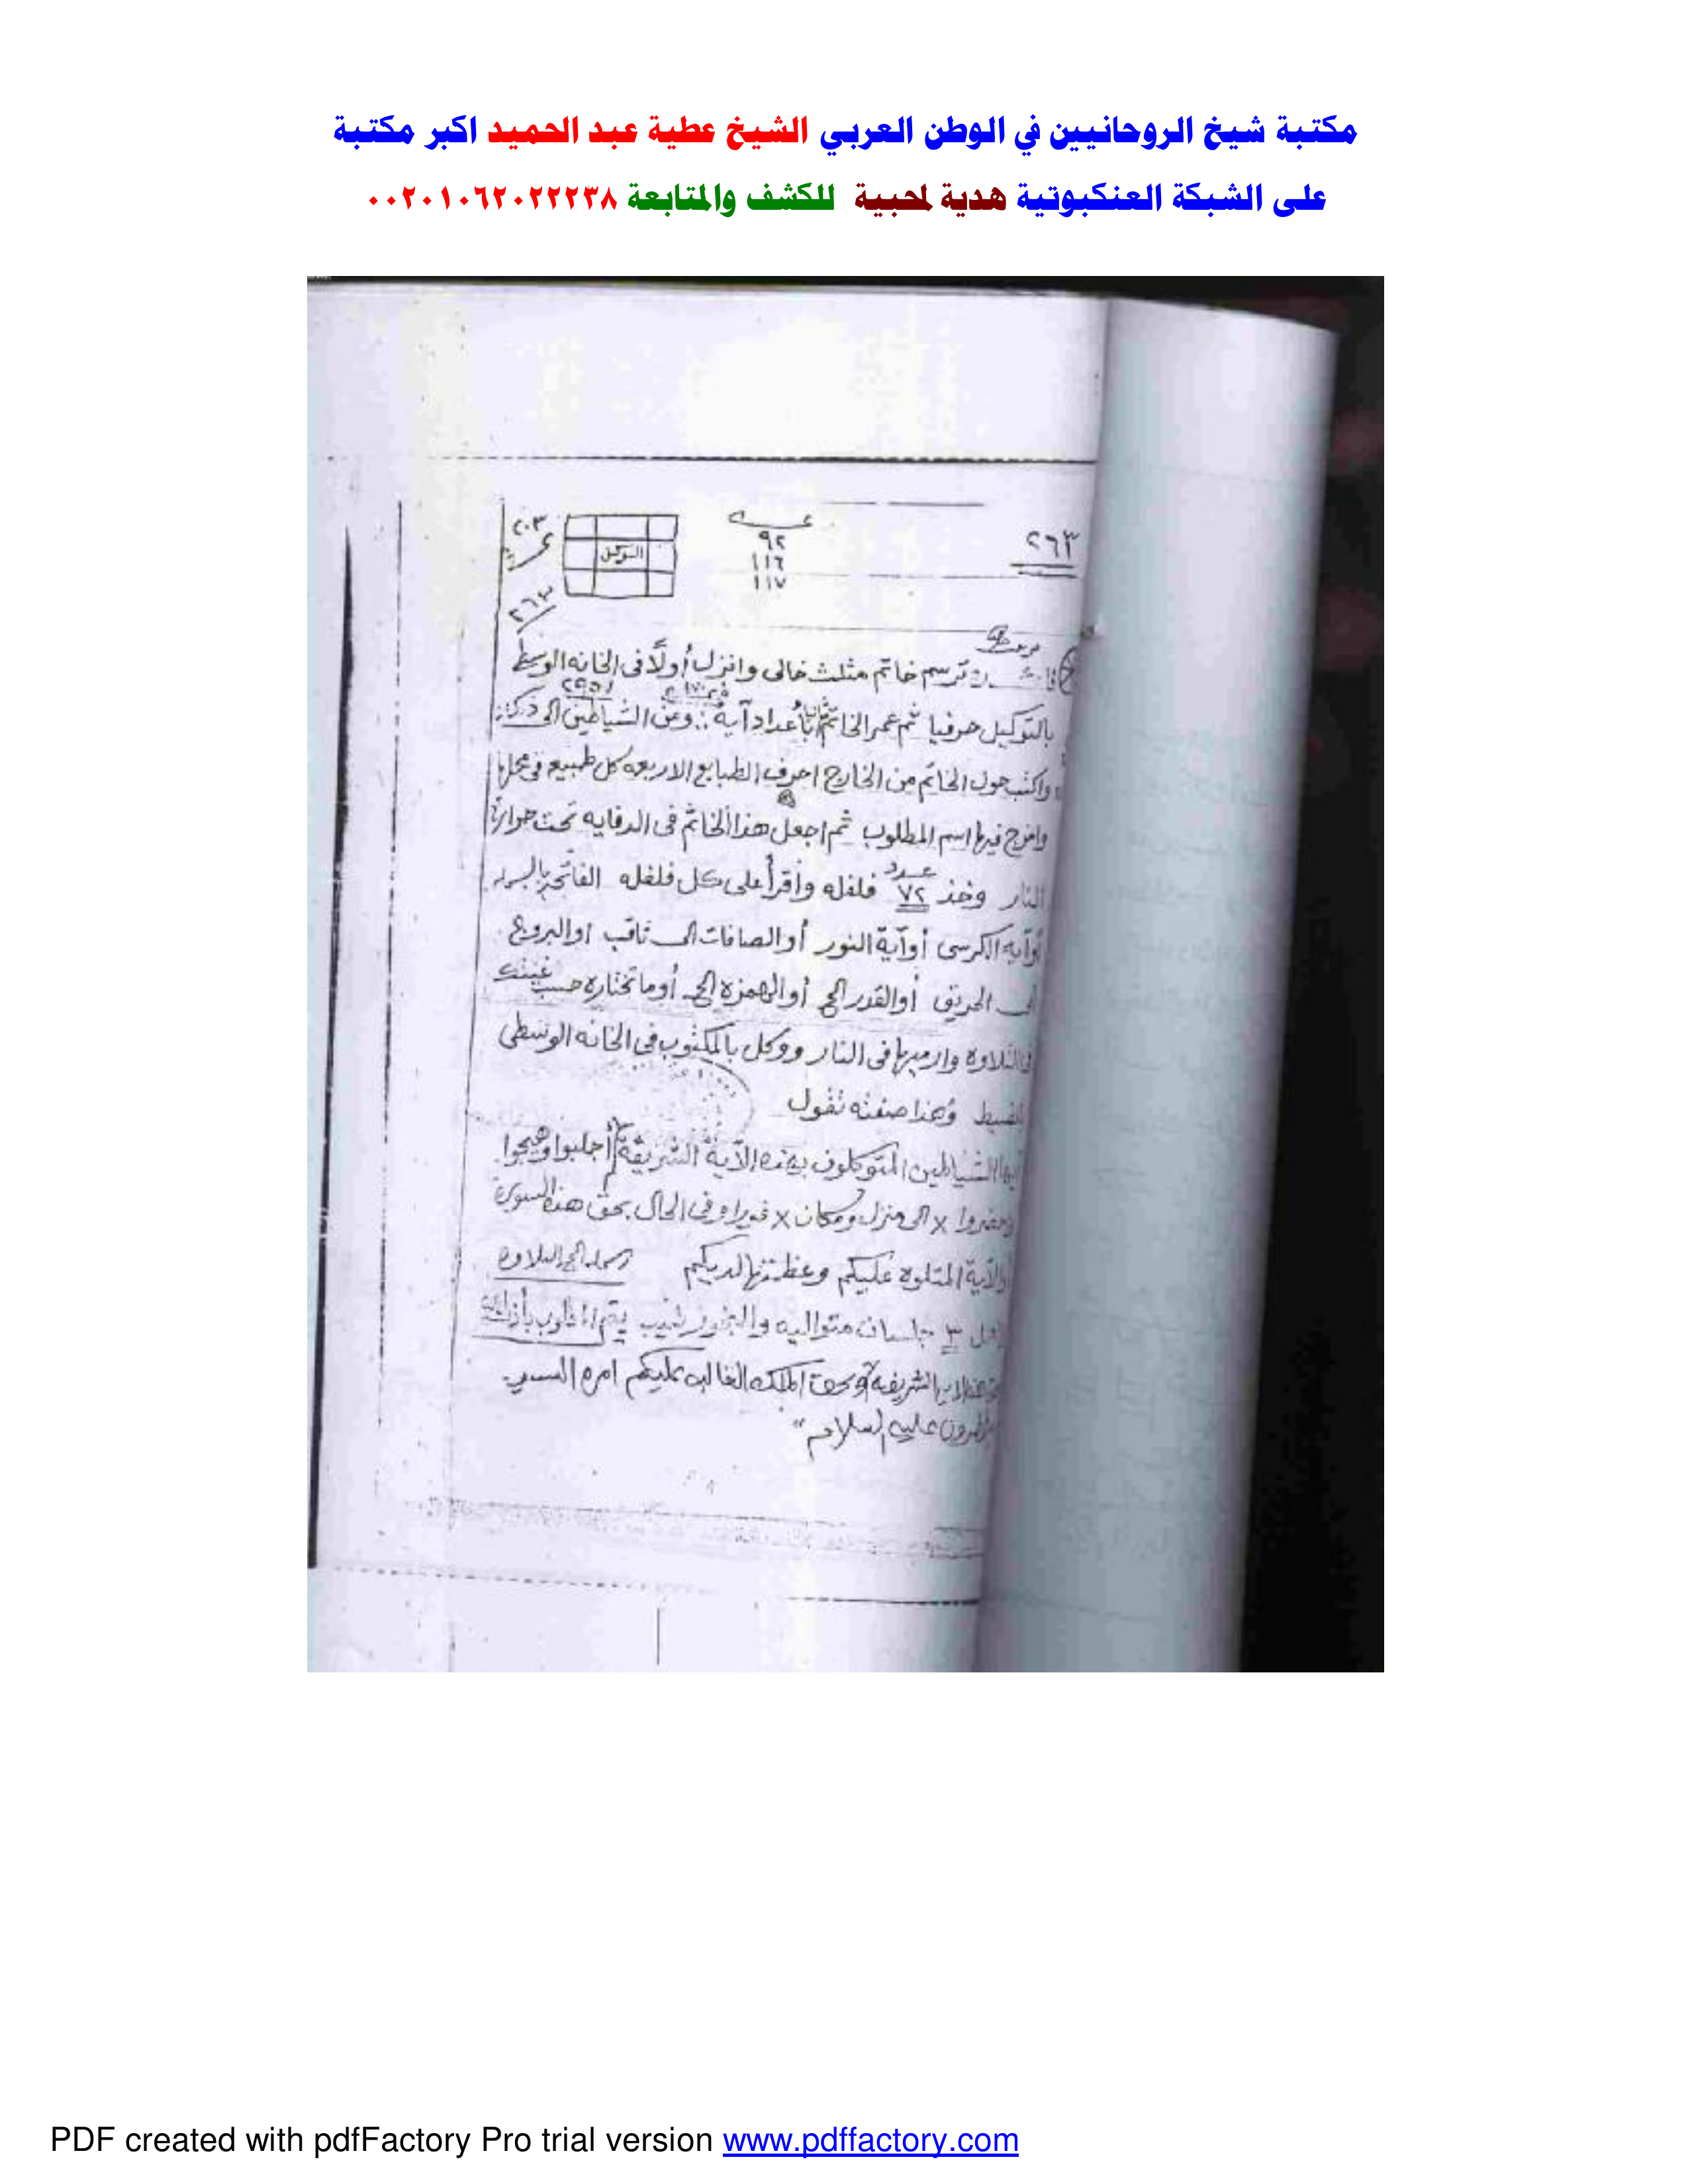 مكتبة شيخ الروحانيين في الوطن العربي الشيخ عطية عبد الحميد اكبر مكتبة
على الشبكة العنكبوتية هدية لمحبية للكشف والمتابعة ٠٠٢٠١٠٦٢٠٢٢٢٣٨
٢٦٣
٩٢
١١٦
١١٧
التوكيل
٢٠٣
٢٦٣
ترسم خاتم مثلث خالى وانزل أولًا فى الخانه الوسطى
بالتوكيل حرفيا ثم عمر الخاتم بأعداد آية ومن الشياطين الى
واكتب حول الخاتم من الخارج احرف الطبايع الاربعه كل طبيع فى محلها
وامزج فيها اسم المطلوب ثم اجعل هذا الخاتم فى الدفايه تحت حرارة
النار وخذ عدد ٧٢ فلفله وأقرأ على كل فلفله الفاتحة
أوآية الكرسى أوآية النور أو الصافات الى ثاقب او البروج
الى الحريق أوالقدر الخ أو الهمزه الخ أوما تختاره حسب
فى التلاوه وارميها فى النار ووكل بالمكتوب فى الخانه الوسطى
وهذا صفته تقول
الشياطين المتوكلون بهذه الآية الشريفة أجلبوا وهيجوا
x الى منزل ومكان x فورا وفى الحال بحق هذه السورة
والآية المتلوه عليكم وعظمتها لديكم
٣ جلسات متواليه والبخور يتم المطلوب بأذن الله
الشريفة وبحق الملك الغالب عليكم امره السيد
عليه السلام
PDF created with pdfFactory Pro trial version www.pdffactory.com